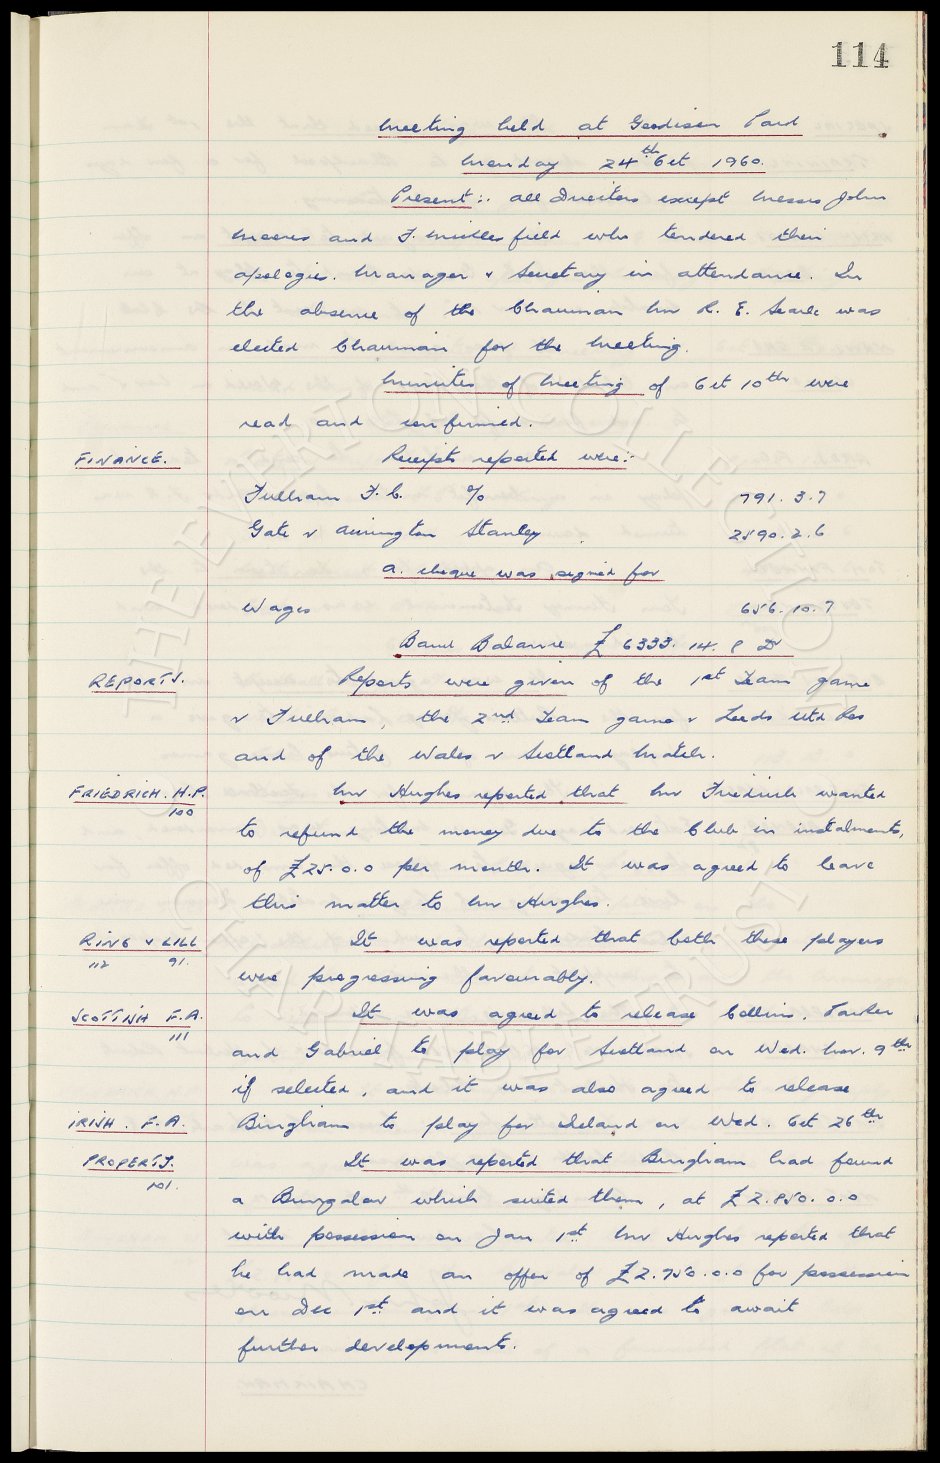 114
Meeting held at Goodison Park
Monday 24th Oct 1960.
Present:- All Directors except Messrs John
Moores and F. Micklesfield who tendered their
apologies. Manager & Secretary in attendance. In
the absence of the Chairman Mr R. E. Searle was
elected Chairman for the Meeting.
Minutes of Meeting of Oct 10th were
read and confirmed.
FINANCE. Receipts reported were:-
Fulham F.C. % 791. 3. 7
Gate v Accrington Stanley 2890. 2. 6
A cheque was signed for
Wages 656. 10. 7
Bank Balance £ 6333. 14. 8 Dr
REPORTS. Reports were given of the 1st Team game
v Fulham, the 2nd Team game v Leeds Utd Res
and of the Wales v Scotland Match.
FRIEDRICH. H.P. Mr Hughes reported that Mr Friedrich wanted
100
to refund the money due to the Club in instalments,
of £25. 0. 0 per month. It was agreed to leave
this matter to Mr Hughes.
RING & LILL It was reported that both these players
112 91.
were progressing favourably.
SCOTTISH F.A. It was agreed to release Collins, Parker
111
and Gabriel to play for Scotland on Wed. Nov. 9th
if selected, and it was also agreed to release
IRISH. F.A. Bingham to play for Ireland on Wed. Oct 26th
PROPERTY. It was reported that Bingham had found
101.
a Bungalow which suited them, at £2.850. 0. 0
with possession on Jan 1st Mr Hughes reported that
he had made an offer of £2.750. 0. 0 for possession
on Dec 1st and it was agreed to await
further developments.
THE EVERTON COLLECTION
CHARITABLE TRUST